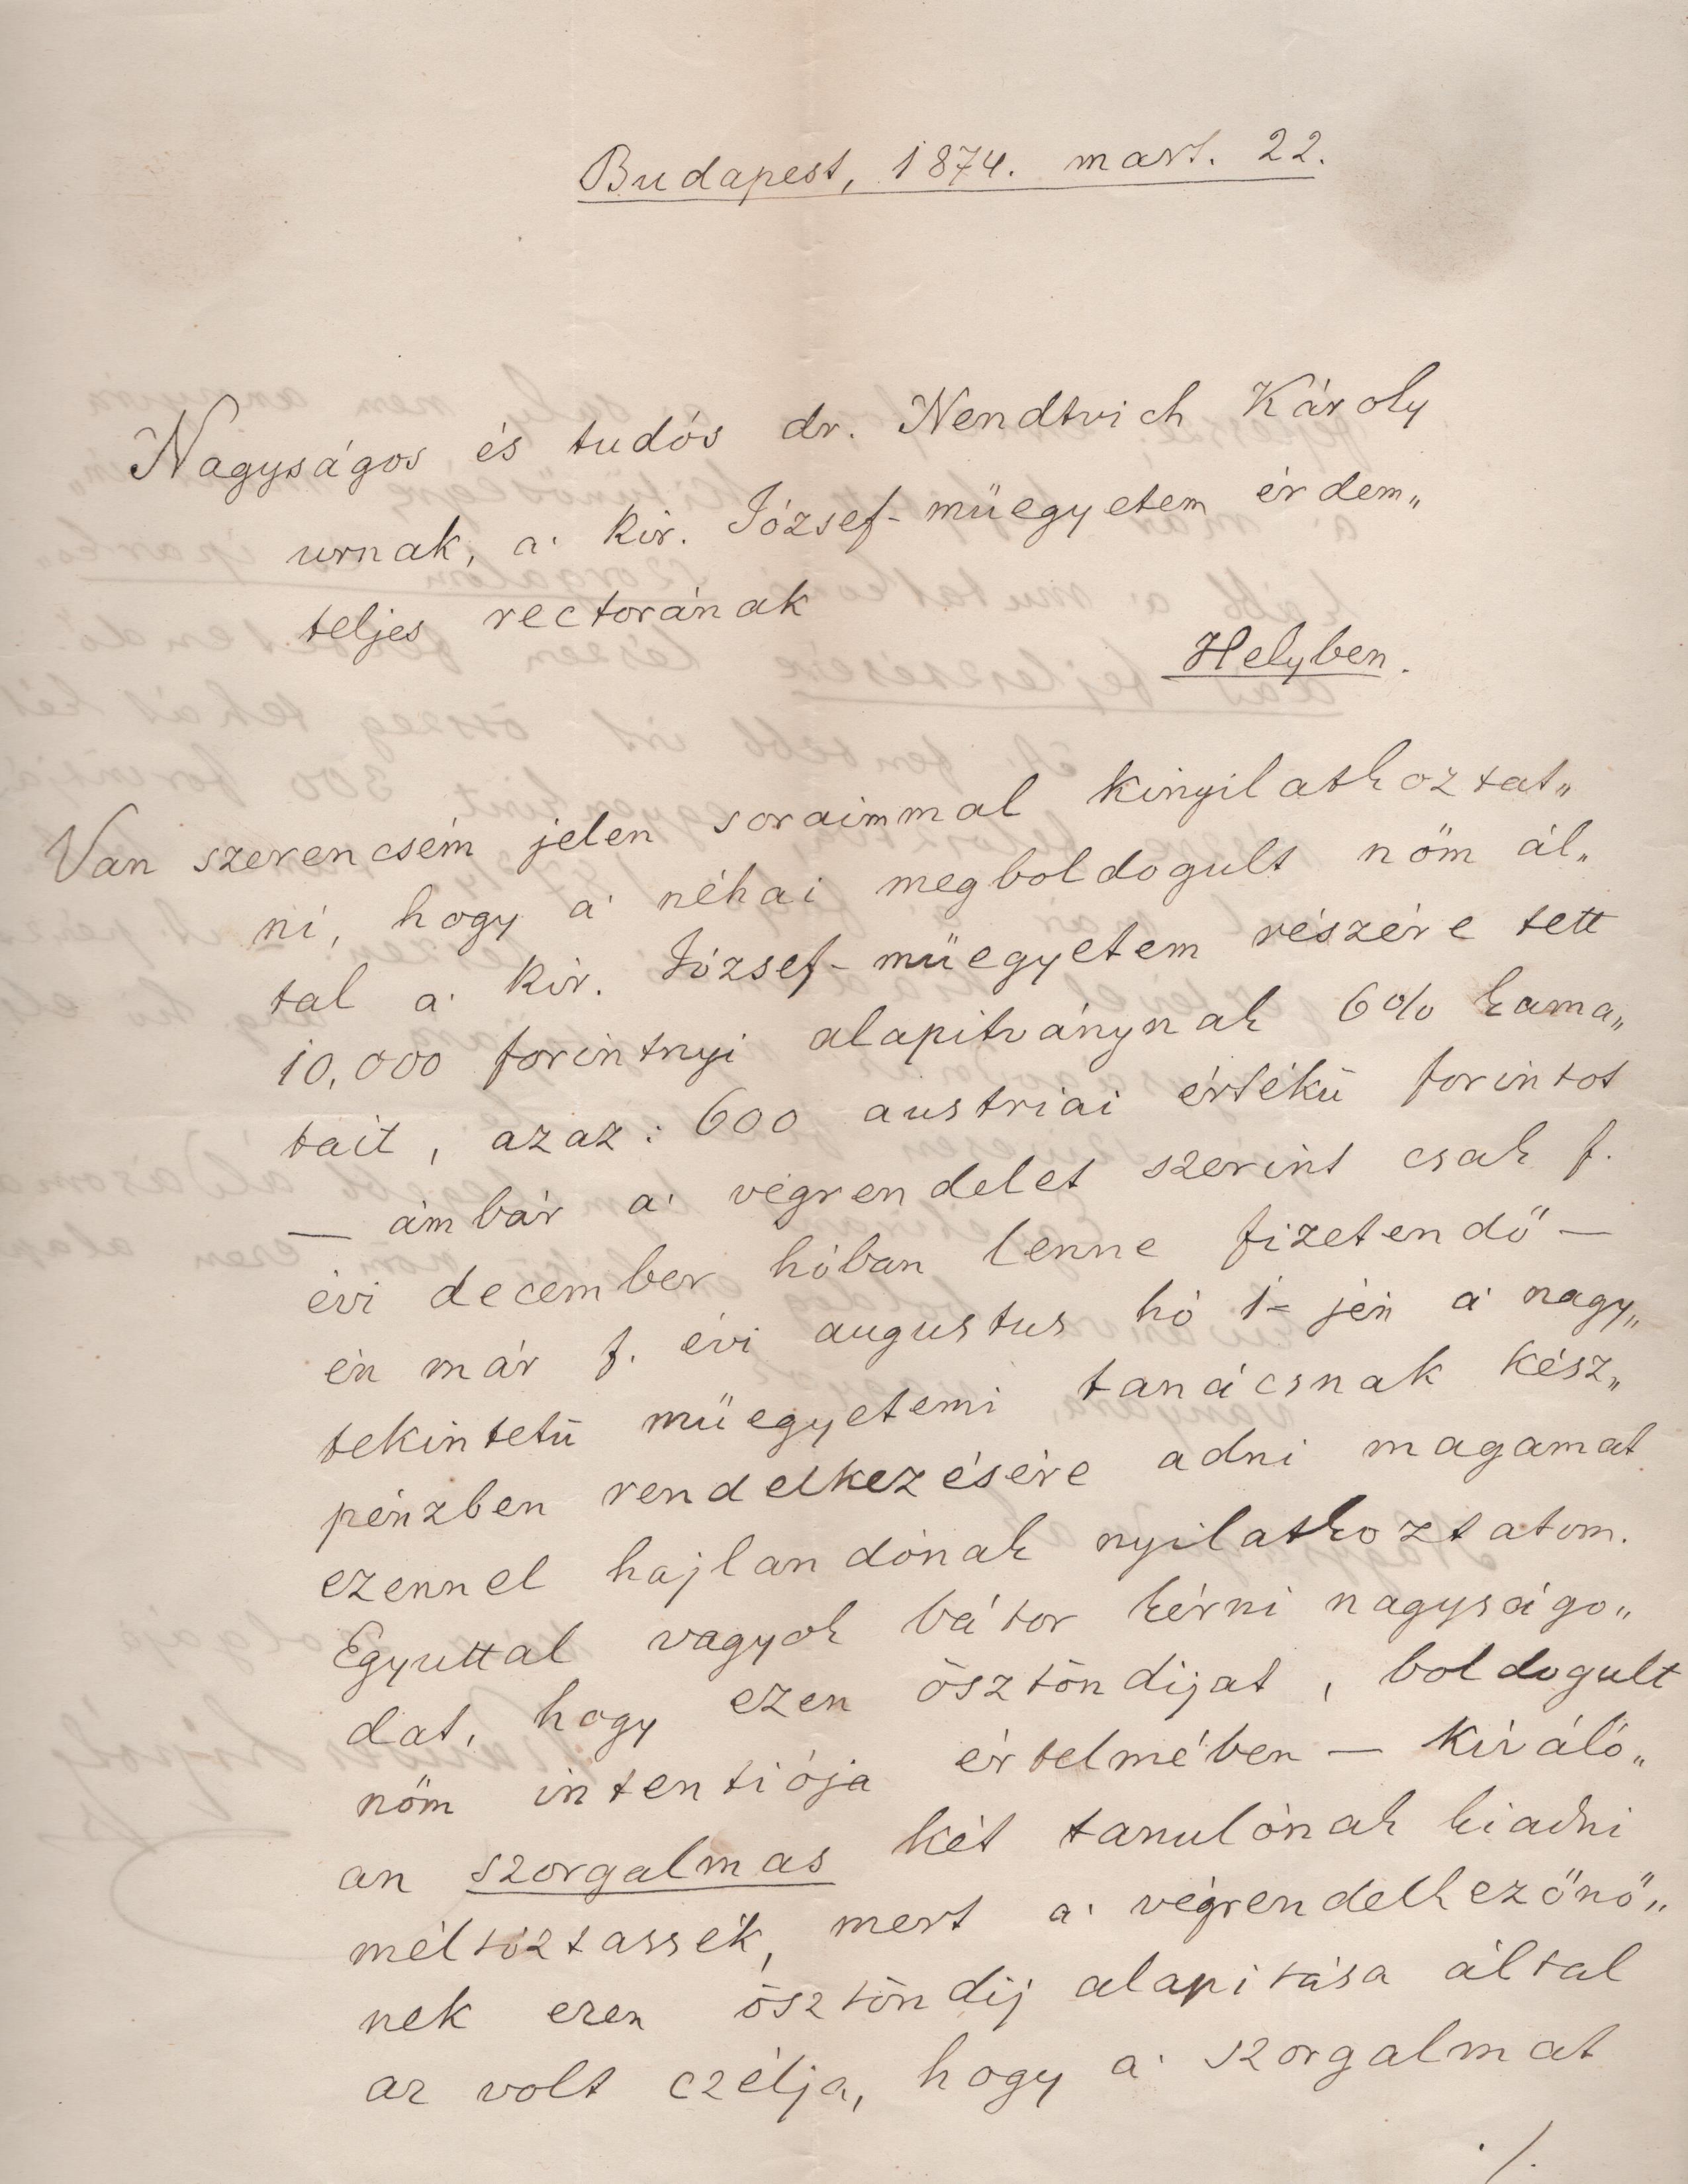 Budapest, 1874. mart. 22.
Nagyságos és tudós dr. Nendtvich Károly
urnak, a' kir. József-müegyetem érdem„
teljes rectorának
Helyben.
Van szerencsém jelen soraimmal kinyilatkoztat„
ni, hogy a' néhai megboldogult nöm ál„
tal a' kir. József-müegyetem részére tett
10,000 forintnyi alapitványnak 6% kama„
tait, azaz: 600 austriai értékü forintot
— ámbár a' végrendelet szerint csak f.
évi december hóban lenne fizetendő —
én már f. évi augustus hó 1-jén a' nagy„
tekintetü müegyetemi tanácsnak kész„
pénzben rendelkezésére adni magamat
ezennel hajlandónak nyilatkoztatom.
Egyuttal vagyok bátor kérni nagyságo„
dat, hogy ezen ösztöndijat, boldogult
nöm intentiója értelmében — kiváló„
an szorgalmas két tanulónak kiadni
méltóztassék, mert a' végrendelkezőnő„
nek ezen ösztöndij alapitása által
az volt czélja, hogy a' szorgalmat
./.